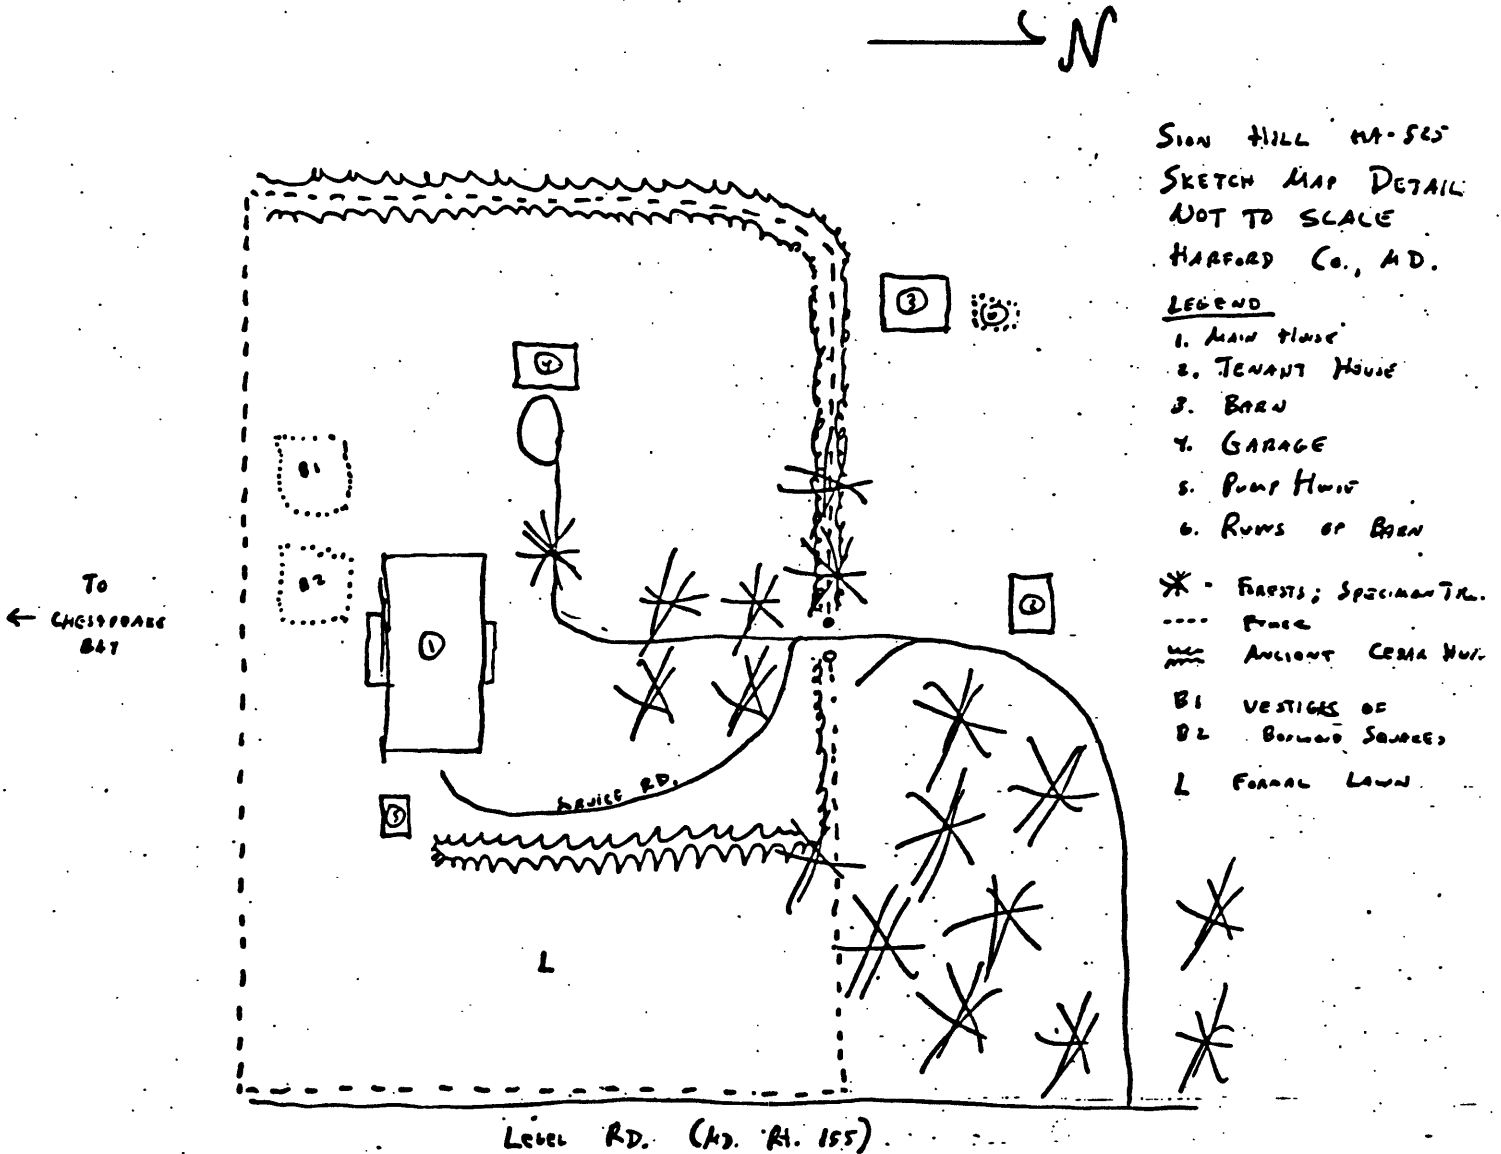 N
SION HILL HA-525
SKETCH MAP DETAIL
NOT TO SCALE
HARFORD CO., MD.
LEGEND
1. MAIN HOUSE
2. TENANT HOUSE
3. BARN
4. GARAGE
5. PUMP HOUSE
6. RUINS OF BARN
- FORESTS; SPECIMAN TR..
FENCE
ANCIENT CEDAR
B1 VESTIGES OF
B2 BOXWOOD SQUARES
L FORMAL LAWN
3
6
4
B1
B2
1
2
5
TO
← CHESAPEAKE
BAY
SERVICE RD.
L
LEVEL RD. (MD. Rt. 155)